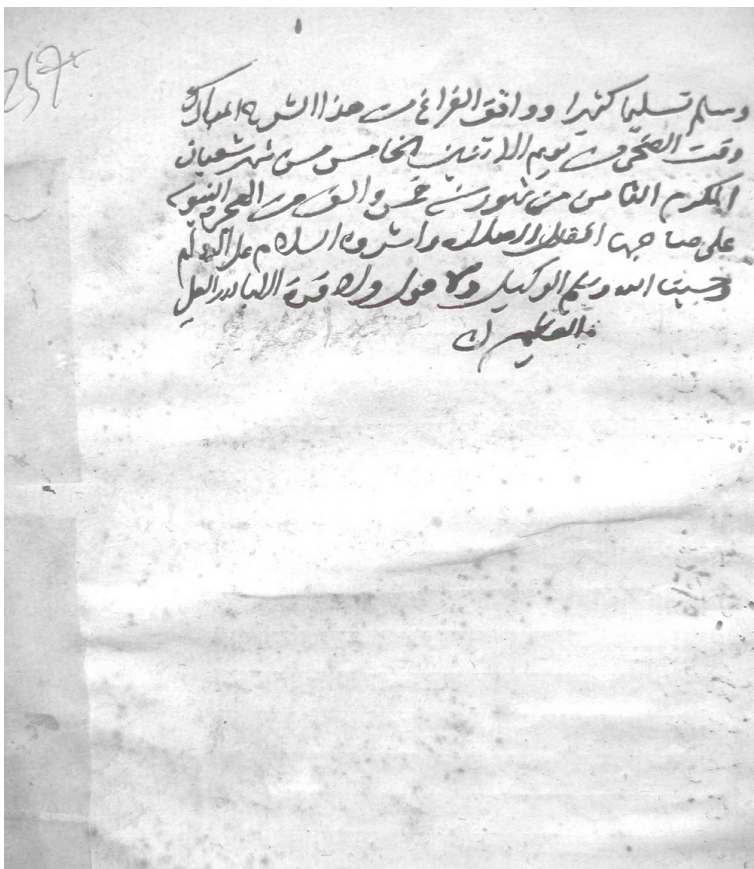 257
وسلم تسليما كثيرا ووافق الفراغ من هذا الشرح المبارك
وقت الضحى من يوم الاثنين الخامس من شهر شعبان
المكرم الثامن من شهور سنة خمس والف من الهجرة النبوية
على صاحبها افضل الصلاة واشرف السلام
وحسبنا الله ونعم الوكيل ولا حول ولا قوة الا بالله العلي
العظيم